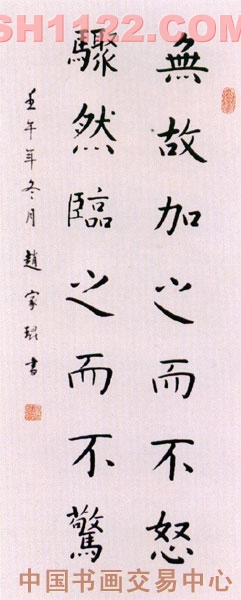 SH1122.COM
無故加之而不怒
驟然臨之而不驚
壬午年冬月趙家琨書
中国书画交易中心